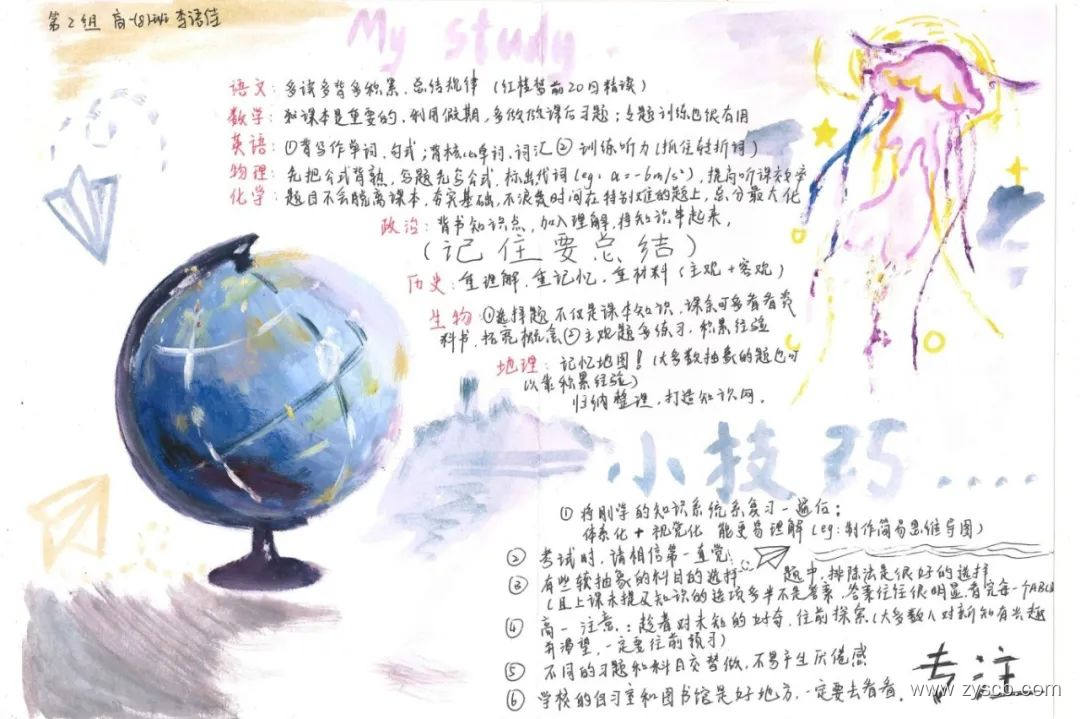 第2组 高一(8)班 李语佳
My study
语文：多读多背多积累，总结规律（红楼梦前20回精读）
数学：课本是重要的，利用假期，多做做课后习题；专题训练也很有用
英语：①背写作单词，句式；背核心单词，词汇②训练听力（抓住转折词）
物理：先把公式背熟，写题先写公式，标出代词（eg：a=-6m/s²），提高听课效率
化学：题目不会脱离课本，夯实基础，不浪费时间在特别难的题上，总分最大化
政治：背书知识点，加入理解，将知识串起来，
（记住要总结）
历史：重理解，重记忆，重材料（主观+客观）
生物：①选择题不仅是课本知识，课余可多看看
科书，拓宽概念②主观题多练习，积累经验
地理：记忆地图！（大多数抽象的题也可
以靠积累经验）
归纳整理，打造知识网。
小技巧....
①将刚学的知识系统系复习一遍后；
体系化+视觉化 能更易理解（eg：制作简易思维导图）
②考试时，请相信第一直觉！
③有些较抽象的科目的选择题中，排除法是很好的选择
（且上课未提及知识的选项多半不是答案，答案往往很明显，看完每一个ABCD
④高一注意：趁着对未知的好奇，往前探索（大多数人对新知有兴趣
有渴望，一定要往前预习）
⑤不同的习题和科目交替做，不易产生厌倦感
⑥学校的自习室和图书馆是好地方，一定要去看看。
专注
www.zyscb.com